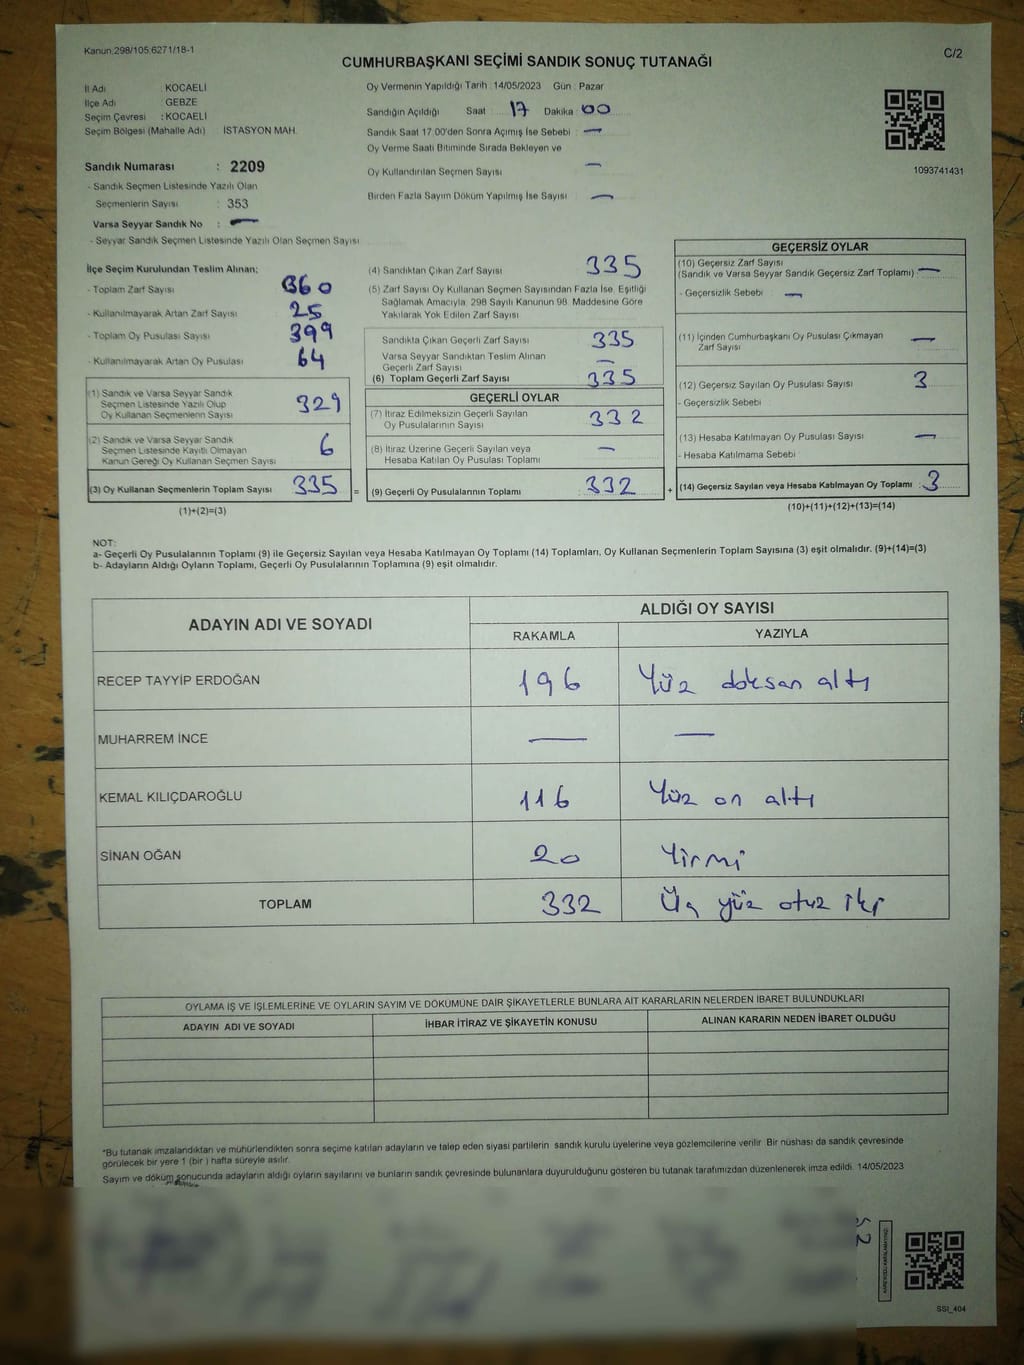 Kanun.298/105.6271/18-1
C/2
CUMHURBAŞKANI SEÇİMİ SANDIK SONUÇ TUTANAĞI
İl Adı : KOCAELİ
İlçe Adı : GEBZE
Seçim Çevresi : KOCAELİ
Seçim Bölgesi (Mahalle Adı) İSTASYON MAH.
Sandık Numarası : 2209
- Sandık Seçmen Listesinde Yazılı Olan
Seçmenlerin Sayısı : 353
Varsa Seyyar Sandık No : —
- Seyyar Sandık Seçmen Listesinde Yazılı Olan Seçmen Sayısı
Oy Vermenin Yapıldığı Tarih : 14/05/2023 Gün : Pazar
Sandığın Açıldığı Saat 17 Dakika : 00
Sandık Saat 17.00'den Sonra Açılmış İse Sebebi : —
Oy Verme Saati Bitiminde Sırada Bekleyen ve
Oy Kullandırılan Seçmen Sayısı —
Birden Fazla Sayım Döküm Yapılmış İse Sayısı —
1093741431
İlçe Seçim Kurulundan Teslim Alınan;
- Toplam Zarf Sayısı 360
- Kullanılmayarak Artan Zarf Sayısı 25
- Toplam Oy Pusulası Sayısı 399
- Kullanılmayarak Artan Oy Pusulası 64
(1) Sandık ve Varsa Seyyar Sandık
Seçmen Listesinde Yazılı Olup
Oy Kullanan Seçmenlerin Sayısı 329
(2) Sandık ve Varsa Seyyar Sandık
Seçmen Listesinde Kayıtlı Olmayan
Kanun Gereği Oy Kullanan Seçmen Sayısı 6
(3) Oy Kullanan Seçmenlerin Toplam Sayısı 335 =
(1)+(2)=(3)
(4) Sandıktan Çıkan Zarf Sayısı 335
(5) Zarf Sayısı Oy Kullanan Seçmen Sayısından Fazla İse, Eşitliği
Sağlamak Amacıyla, 298 Sayılı Kanunun 98. Maddesine Göre
Yakılarak Yok Edilen Zarf Sayısı
Sandıkta Çıkan Geçerli Zarf Sayısı 335
Varsa Seyyar Sandıktan Teslim Alınan
Geçerli Zarf Sayısı —
(6) Toplam Geçerli Zarf Sayısı 335
GEÇERLİ OYLAR
(7) İtiraz Edilmeksizin Geçerli Sayılan
Oy Pusulalarının Sayısı 332
(8) İtiraz Üzerine Geçerli Sayılan veya
Hesaba Katılan Oy Pusulası Toplamı —
(9) Geçerli Oy Pusulalarının Toplamı 332 +
GEÇERSİZ OYLAR
(10) Geçersiz Zarf Sayısı
(Sandık ve Varsa Seyyar Sandık Geçersiz Zarf Toplamı) : —
- Geçersizlik Sebebi : —
(11) İçinden Cumhurbaşkanı Oy Pusulası Çıkmayan
Zarf Sayısı —
(12) Geçersiz Sayılan Oy Pusulası Sayısı 3
- Geçersizlik Sebebi
(13) Hesaba Katılmayan Oy Pusulası Sayısı —
- Hesaba Katılmama Sebebi
(14) Geçersiz Sayılan veya Hesaba Katılmayan Oy Toplamı : 3
(10)+(11)+(12)+(13)=(14)
NOT:
a- Geçerli Oy Pusulalarının Toplamı (9) ile Geçersiz Sayılan veya Hesaba Katılmayan Oy Toplamı (14) Toplamları, Oy Kullanan Seçmenlerin Toplam Sayısına (3) eşit olmalıdır. (9)+(14)=(3)
b- Adayların Aldığı Oyların Toplamı, Geçerli Oy Pusulalarının Toplamına (9) eşit olmalıdır.
ADAYIN ADI VE SOYADI
ALDIĞI OY SAYISI
RAKAMLA YAZIYLA
RECEP TAYYİP ERDOĞAN 196 Yüz doksan altı
MUHARREM İNCE — —
KEMAL KILIÇDAROĞLU 116 Yüz on altı
SİNAN OĞAN 20 Yirmi
TOPLAM 332 Üç yüz otuz iki
OYLAMA İŞ VE İŞLEMLERİNE VE OYLARIN SAYIM VE DÖKÜMÜNE DAİR ŞİKAYETLERLE BUNLARA AİT KARARLARIN NELERDEN İBARET BULUNDUKLARI
ADAYIN ADI VE SOYADI İHBAR İTİRAZ VE ŞİKAYETİN KONUSU ALINAN KARARIN NEDEN İBARET OLDUĞU
*Bu tutanak imzalandıktan ve mühürlendikten sonra seçime katılan adayların ve talep eden siyasi partilerin sandık kurulu üyelerine veya gözlemcilerine verilir. Bir nüshası da sandık çevresinde
görülecek bir yere 1 (bir ) hafta süreyle asılır.
Sayım ve döküm sonucunda adayların aldığı oyların sayılarını ve bunların sandık çevresinde bulunanlara duyurulduğunu gösteren bu tutanak tarafımızdan düzenlenerek imza edildi. 14/05/2023
SSI_404